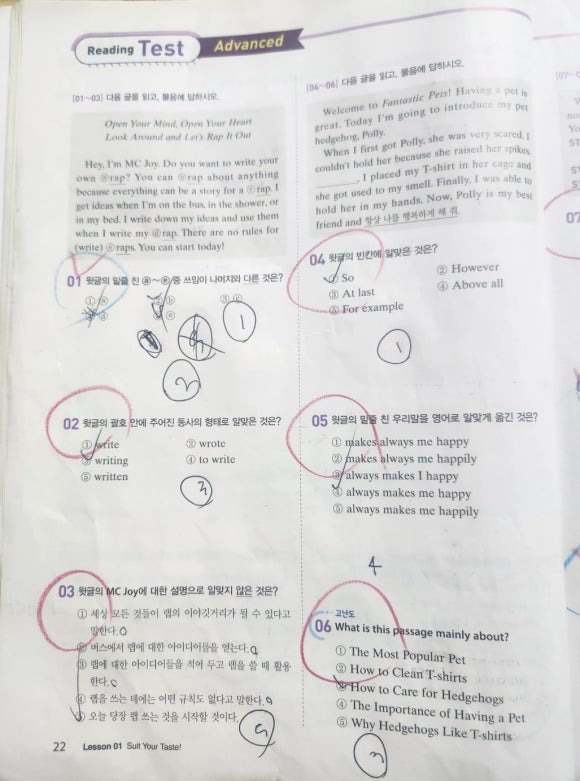 Reading Test Advanced
[01~03] 다음 글을 읽고, 물음에 답하시오.
Open Your Mind, Open Your Heart
Look Around and Let's Rap It Out
Hey, I'm MC Joy. Do you want to write your
own ⓐrap? You can ⓑrap about anything
because everything can be a story for a ⓒrap. I
get ideas when I'm on the bus, in the shower, or
in my bed. I write down my ideas and use them
when I write my ⓓrap. There are no rules for
(write) ⓔraps. You can start today!
01 윗글의 밑줄 친 ⓐ~ⓔ 중 쓰임이 나머지와 다른 것은?
① ⓐ ② ⓑ ③ ⓒ
④ ⓓ ⑤ ⓔ
4 1
2
02 윗글의 괄호 안에 주어진 동사의 형태로 알맞은 것은?
① write ② wrote
③ writing ④ to write
⑤ written
3
03 윗글의 MC Joy에 대한 설명으로 알맞지 않은 것은?
① 세상 모든 것들이 랩의 이야깃거리가 될 수 있다고
말한다.
② 버스에서 랩에 대한 아이디어들을 얻는다.
③ 랩에 대한 아이디어들을 적어 두고 랩을 쓸 때 활용
한다.
④ 랩을 쓰는 데에는 어떤 규칙도 없다고 말한다.
⑤ 오늘 당장 랩 쓰는 것을 시작할 것이다.
5
22 Lesson 01 Suit Your Taste!
[04~06] 다음 글을 읽고, 물음에 답하시오.
Welcome to Fantastic Pets! Having a pet is
great. Today I'm going to introduce my pet
hedgehog, Polly.
When I first got Polly, she was very scared. I
couldn't hold her because she raised her spikes.
______, I placed my T-shirt in her cage and
she got used to my smell. Finally, I was able to
hold her in my hands. Now, Polly is my best
friend and 항상 나를 행복하게 해 줘.
04 윗글의 빈칸에 알맞은 것은?
① So ② However
③ At last ④ Above all
⑤ For example
1
05 윗글의 밑줄 친 우리말을 영어로 알맞게 옮긴 것은?
① makes always me happy
② makes always me happily
③ always makes I happy
④ always makes me happy
⑤ always makes me happily
4
고난도
06 What is this passage mainly about?
① The Most Popular Pet
② How to Clean T-shirts
③ How to Care for Hedgehogs
④ The Importance of Having a Pet
⑤ Why Hedgehogs Like T-shirts
3
[07~
07